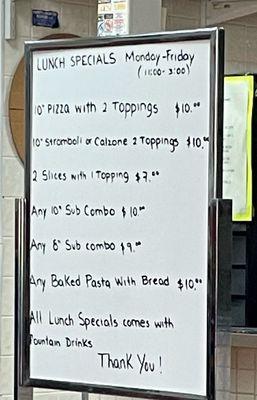 LUNCH SPECIALS Monday-Friday
(11:00-3:00)
10" Pizza with 2 Toppings $10.00
10" Stromboli or Calzone 2 Toppings $10.00
2 Slices with 1 Topping $7.00
Any 10" Sub Combo $10.00
Any 8" Sub combo $9.00
Any Baked Pasta With Bread $10.00
All Lunch Specials comes with
Fountain Drinks
Thank You!